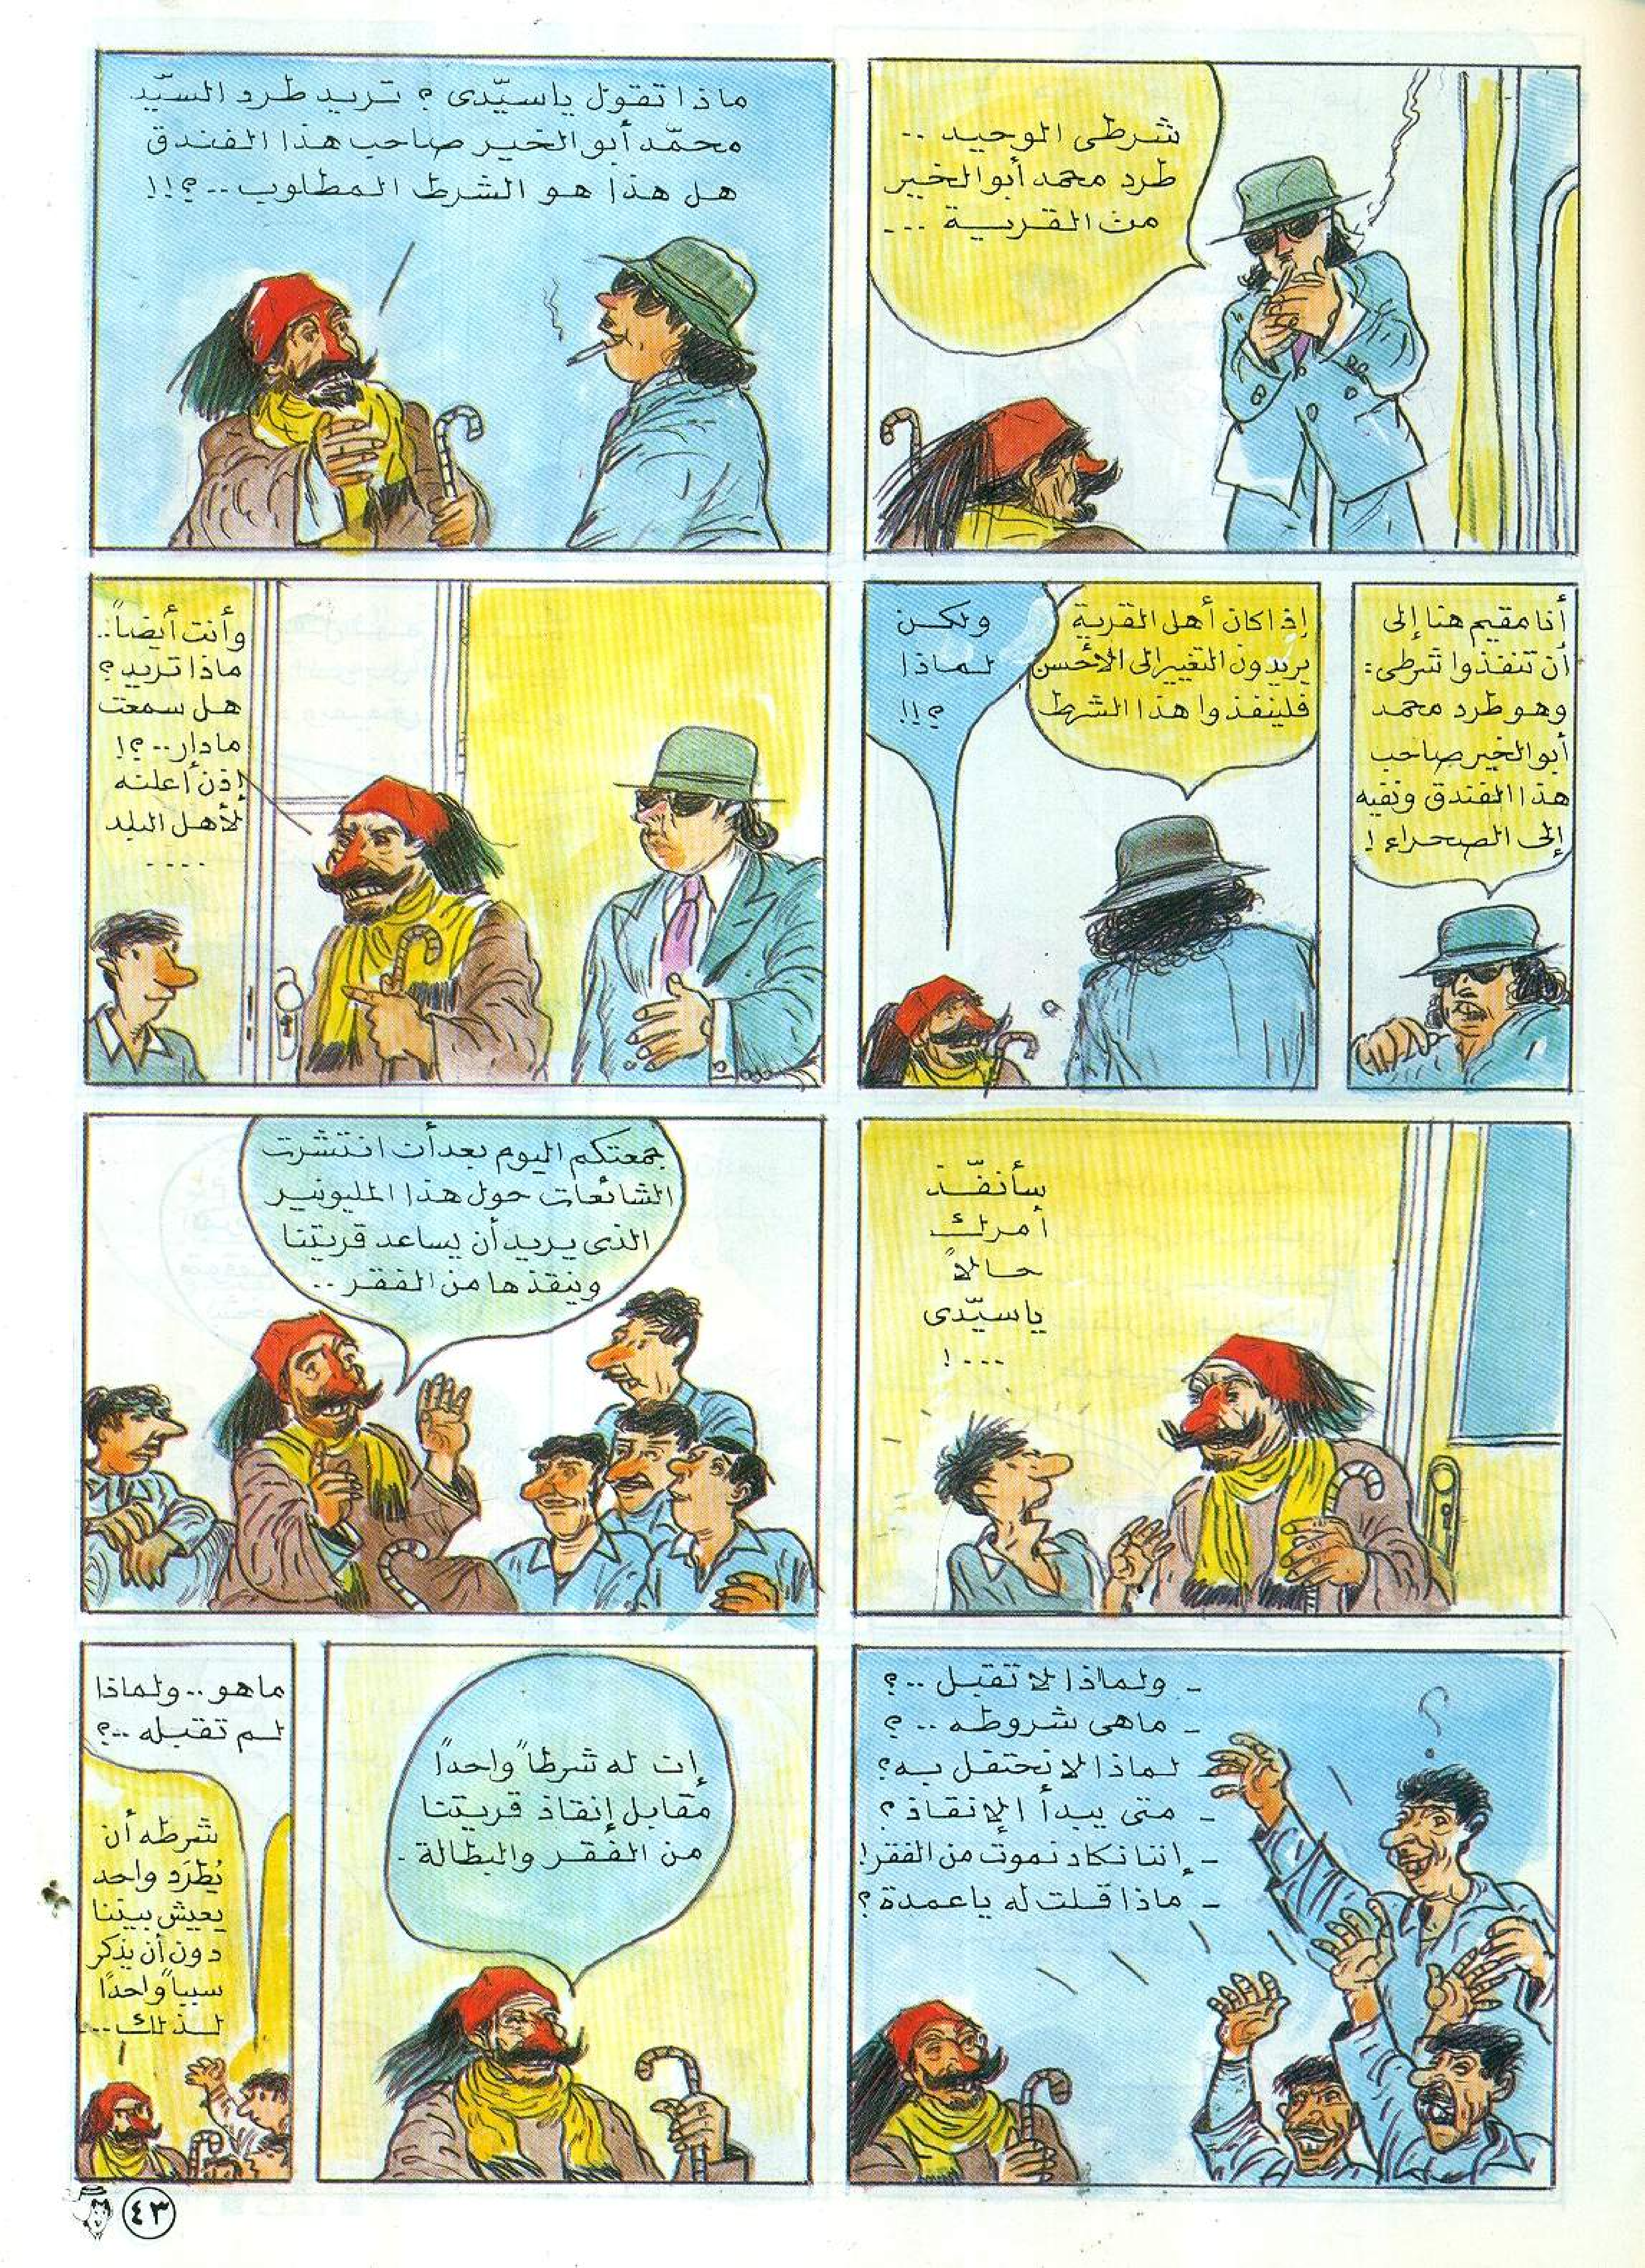 شرطى الوحيد ..
طرد محمد أبو الخير
من القرية ...
ماذا تقول ياسيّدى ؟ تريد طرد السيّد
محمّد أبو الخير صاحب هذا الفندق
هل هذا هو الشرط المطلوب ..؟!!
أنا مقيم هنا إلى
أن تنفذوا شرطى :
وهو طرد محمد
أبو الخير صاحب
هذا الفندق ونفيه
إلى الصحراء !
إذا كان أهل القرية
يريدون التغيير إلى الأحسن
فلينفذوا هذا الشرط
ولكن
لماذا
؟!!
وأنت أيضاً..
ماذا تريد ؟
هل سمعت
مادار ..؟!
إذن أعلنه
لأهل البلد
....
سأنفّذ
أمرك
حالاً
ياسيّدى
...!
جمعتكم اليوم بعد أن انتشرت
الشائعات حول هذا المليونير
الذى يريد أن يساعد قريتنا
وينقذها من الفقر ..
- ولماذا لا تقبل ..؟
- ماهى شروطه ..؟
- لماذا لا نحتفل به ؟
- متى يبدأ الإنقاذ ؟
- إننا نكاد نموت من الفقر !
- ماذا قلت له ياعمدة ؟
؟
إن له شرطاً واحداً
مقابل إنقاذ قريتنا
من الفقر والبطالة .
ماهو .. ولماذا
لم تقبله ..؟
شرطه أن
يُطرَد واحد
يعيش بيننا
دون أن يذكر
سبباً واحداً
لذلك ...
٤٣